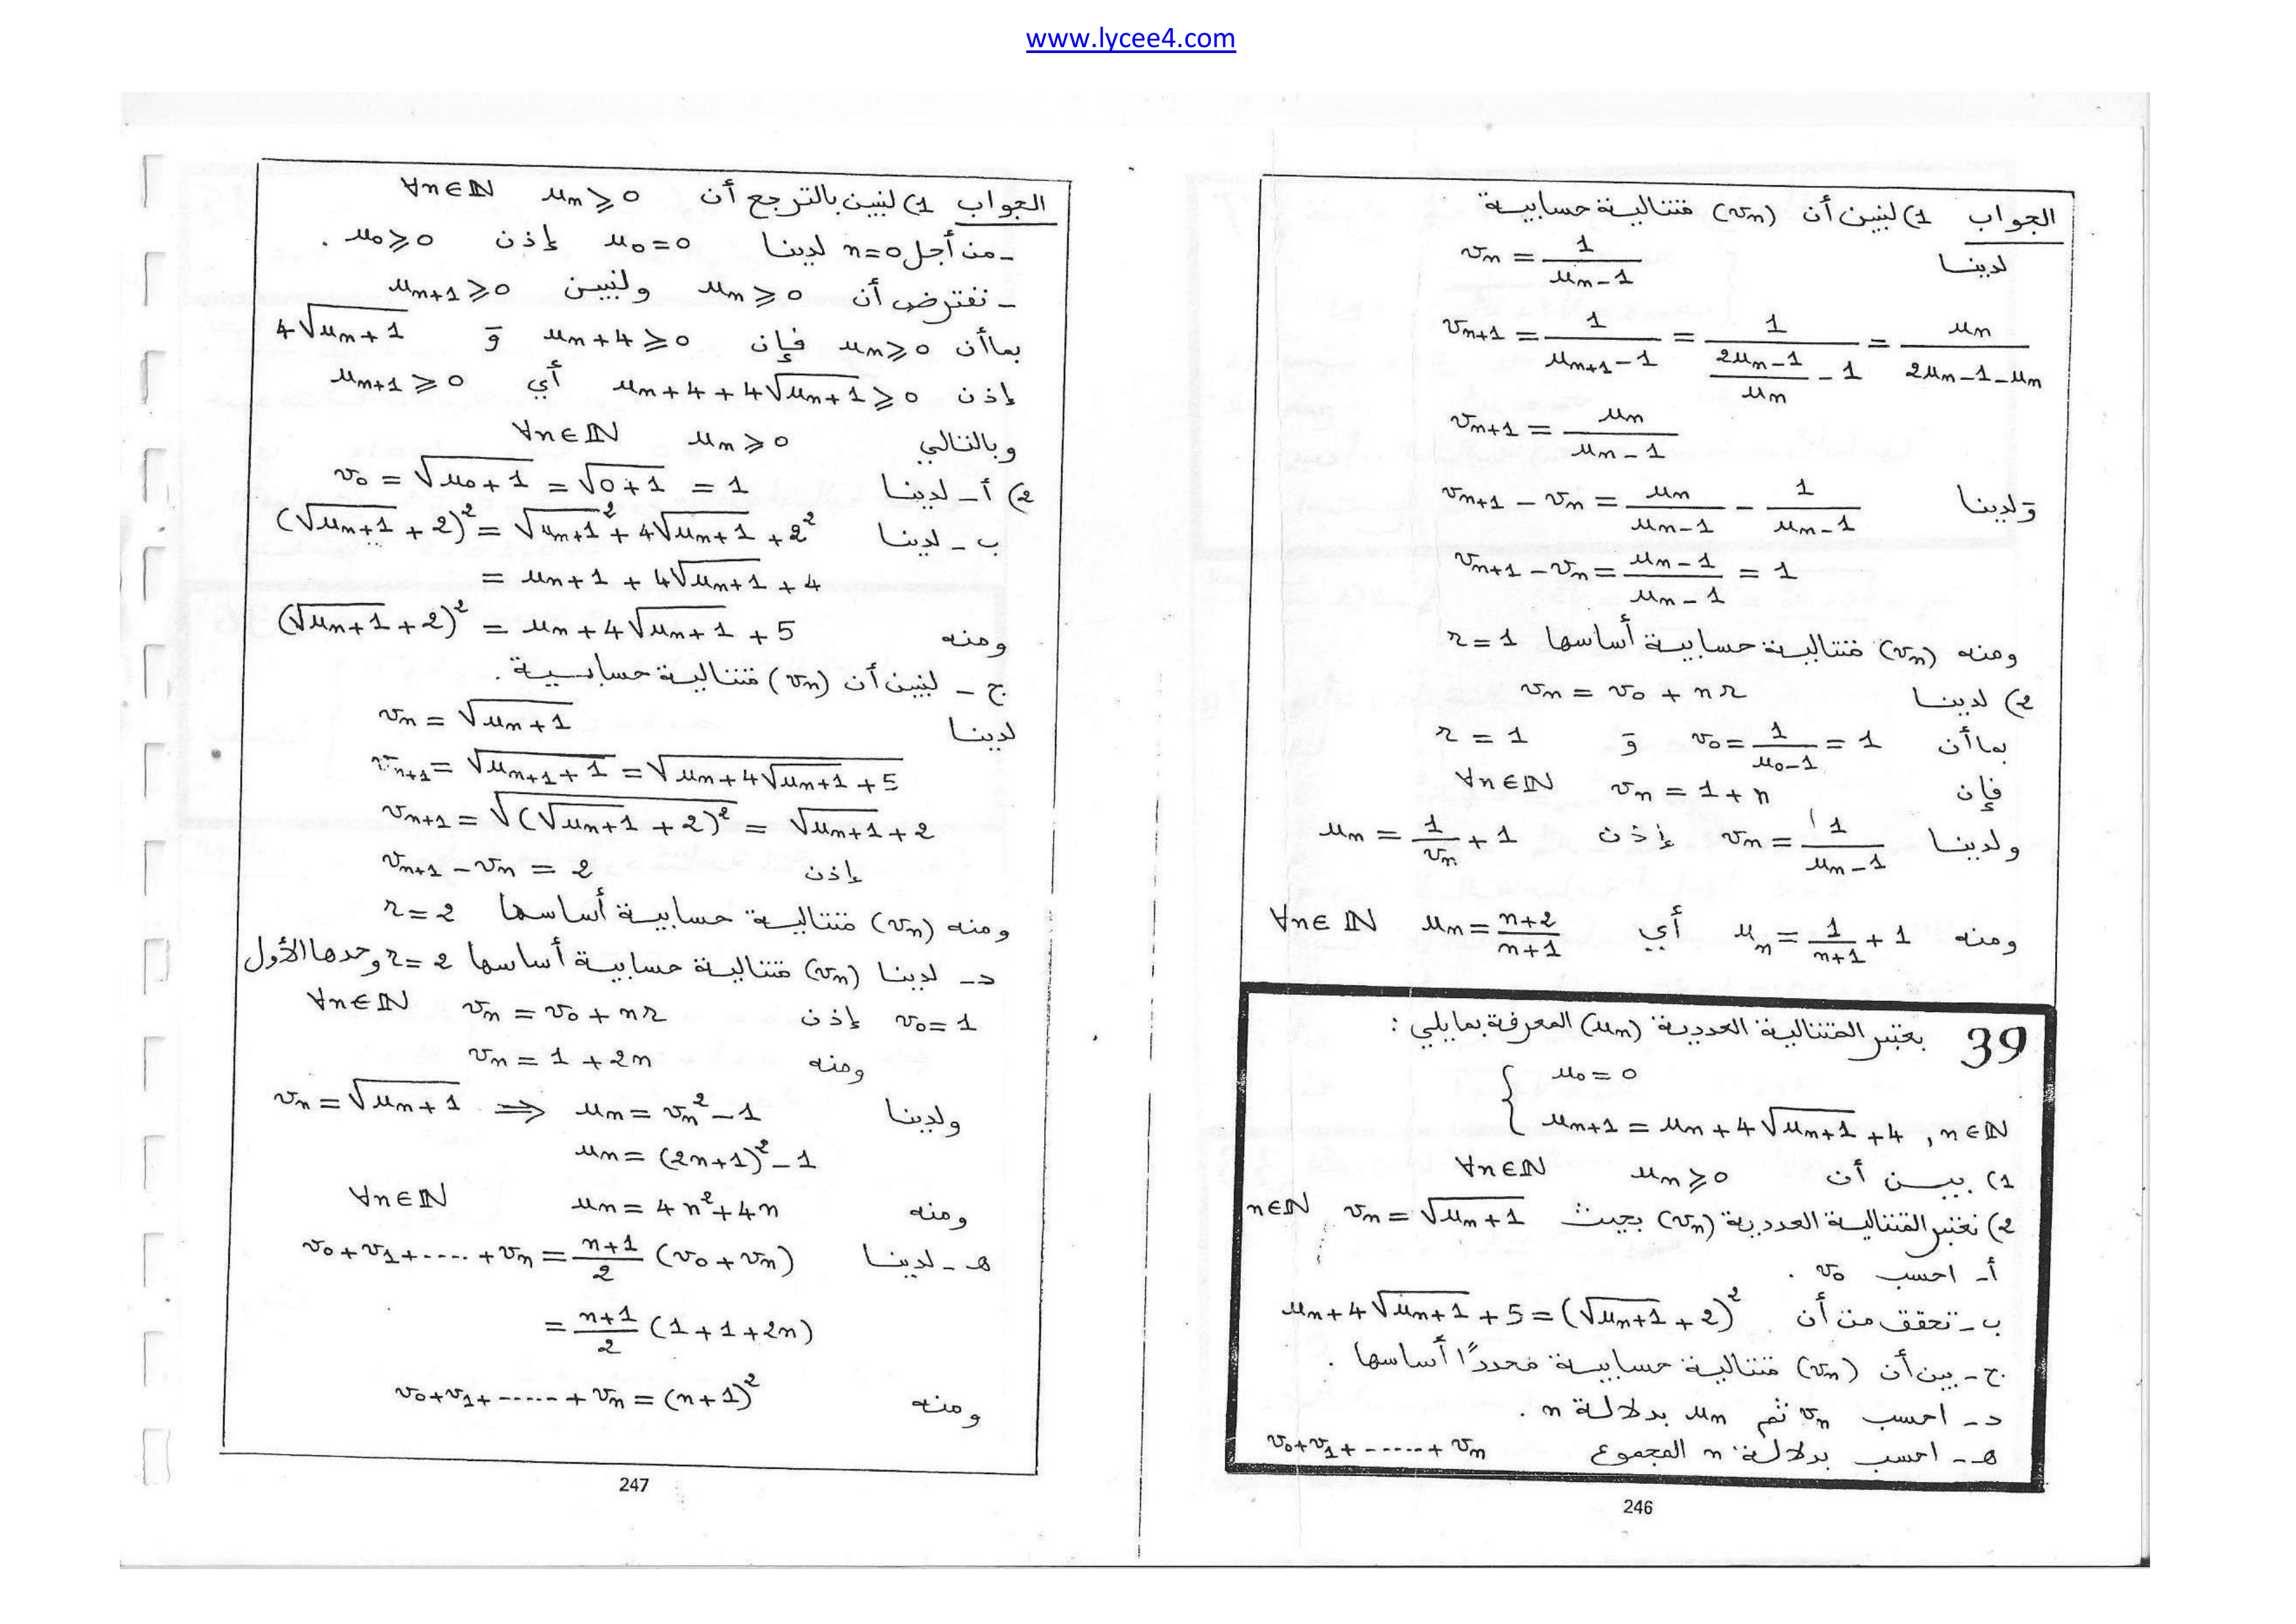 www.lycee4.com
الجواب 1) لنبين أن (vn) متتالية حسابية
لدينا vn = 1/(un-1)
vn+1 = 1/(un+1 - 1) = 1/((2un-1)/un - 1) = un/(2un-1-un)
vn+1 = un/(un-1)
ولدينا vn+1 - vn = un/(un-1) - 1/(un-1)
vn+1 - vn = (un-1)/(un-1) = 1
ومنه (vn) متتالية حسابية أساسها r=1
2) لدينا vn = v0 + nr
بما أن v0 = 1/(u0-1) = 1 و r = 1
فإن vn = 1+n ∀n∈ℕ
ولدينا vn = 1/(un-1) إذن un = 1/vn + 1
ومنه un = 1/(n+1) + 1 أي un = (n+2)/(n+1) ∀n∈ℕ
39 نعتبر المتتالية العددية (un) المعرفة بمايلي :
{ u0 = 0
un+1 = un + 4√(un+1) + 4 , n∈ℕ
1) بين أن un ≥ 0 ∀n∈ℕ
2) نعتبر المتتالية العددية (vn) بحيث vn = √(un+1) n∈ℕ
أ- احسب v0 .
ب- تحقق من أن un + 4√(un+1) + 5 = (√(un+1) + 2)²
ج- بين أن (vn) متتالية حسابية محددًا أساسها .
د- احسب vn ثم un بدلالة n .
هـ- احسب بدلالة n المجموع v0+v1+------+vn
246
الجواب 1) لنبين بالترجع أن un ≥ 0 ∀n∈ℕ
- من أجل n=0 لدينا u0=0 إذن u0≥0 .
- نفترض أن un ≥ 0 ولنبين un+1 ≥ 0
بما أن un≥0 فإن un+4 ≥ 0 و 4√(un+1)
إذن un+4+4√(un+1) ≥ 0 أي un+1 ≥ 0
وبالتالي un ≥ 0 ∀n∈ℕ
2) أ- لدينا v0 = √(u0+1) = √(0+1) = 1
ب- لدينا (√(un+1) + 2)² = √(un+1)² + 4√(un+1) + 2²
= un+1 + 4√(un+1) + 4
ومنه (√(un+1) + 2)² = un + 4√(un+1) + 5
ج- لنبين أن (vn) متتالية حسابية .
لدينا vn = √(un+1)
vn+1 = √(un+1 + 1) = √(un + 4√(un+1) + 5)
vn+1 = √((√(un+1) + 2)²) = √(un+1) + 2
إذن vn+1 - vn = 2
ومنه (vn) متتالية حسابية أساسها r=2
د- لدينا (vn) متتالية حسابية أساسها r=2 وحدها الأول
v0=1 إذن vn = v0 + nr ∀n∈ℕ
ومنه vn = 1 + 2n
ولدينا vn = √(un+1) ⟹ un = vn² - 1
un = (2n+1)² - 1
ومنه un = 4n² + 4n ∀n∈ℕ
هـ- لدينا v0+v1+-----+vn = (n+1)/2 (v0+vn)
= (n+1)/2 (1+1+2n)
ومنه v0+v1+------+vn = (n+1)²
247